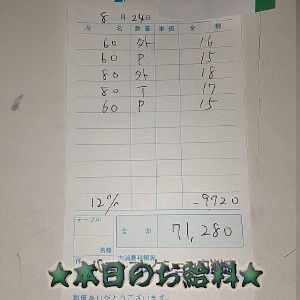 8月24日
品名 数量 単価 金額
60 外 16
60 P 15
80 外 18
80 T 17
60 P 15
12% -9720
テーブル
合計 71,280
名様
係
内消費税額等
★本日のお給料★
毎度ありがとうございます。